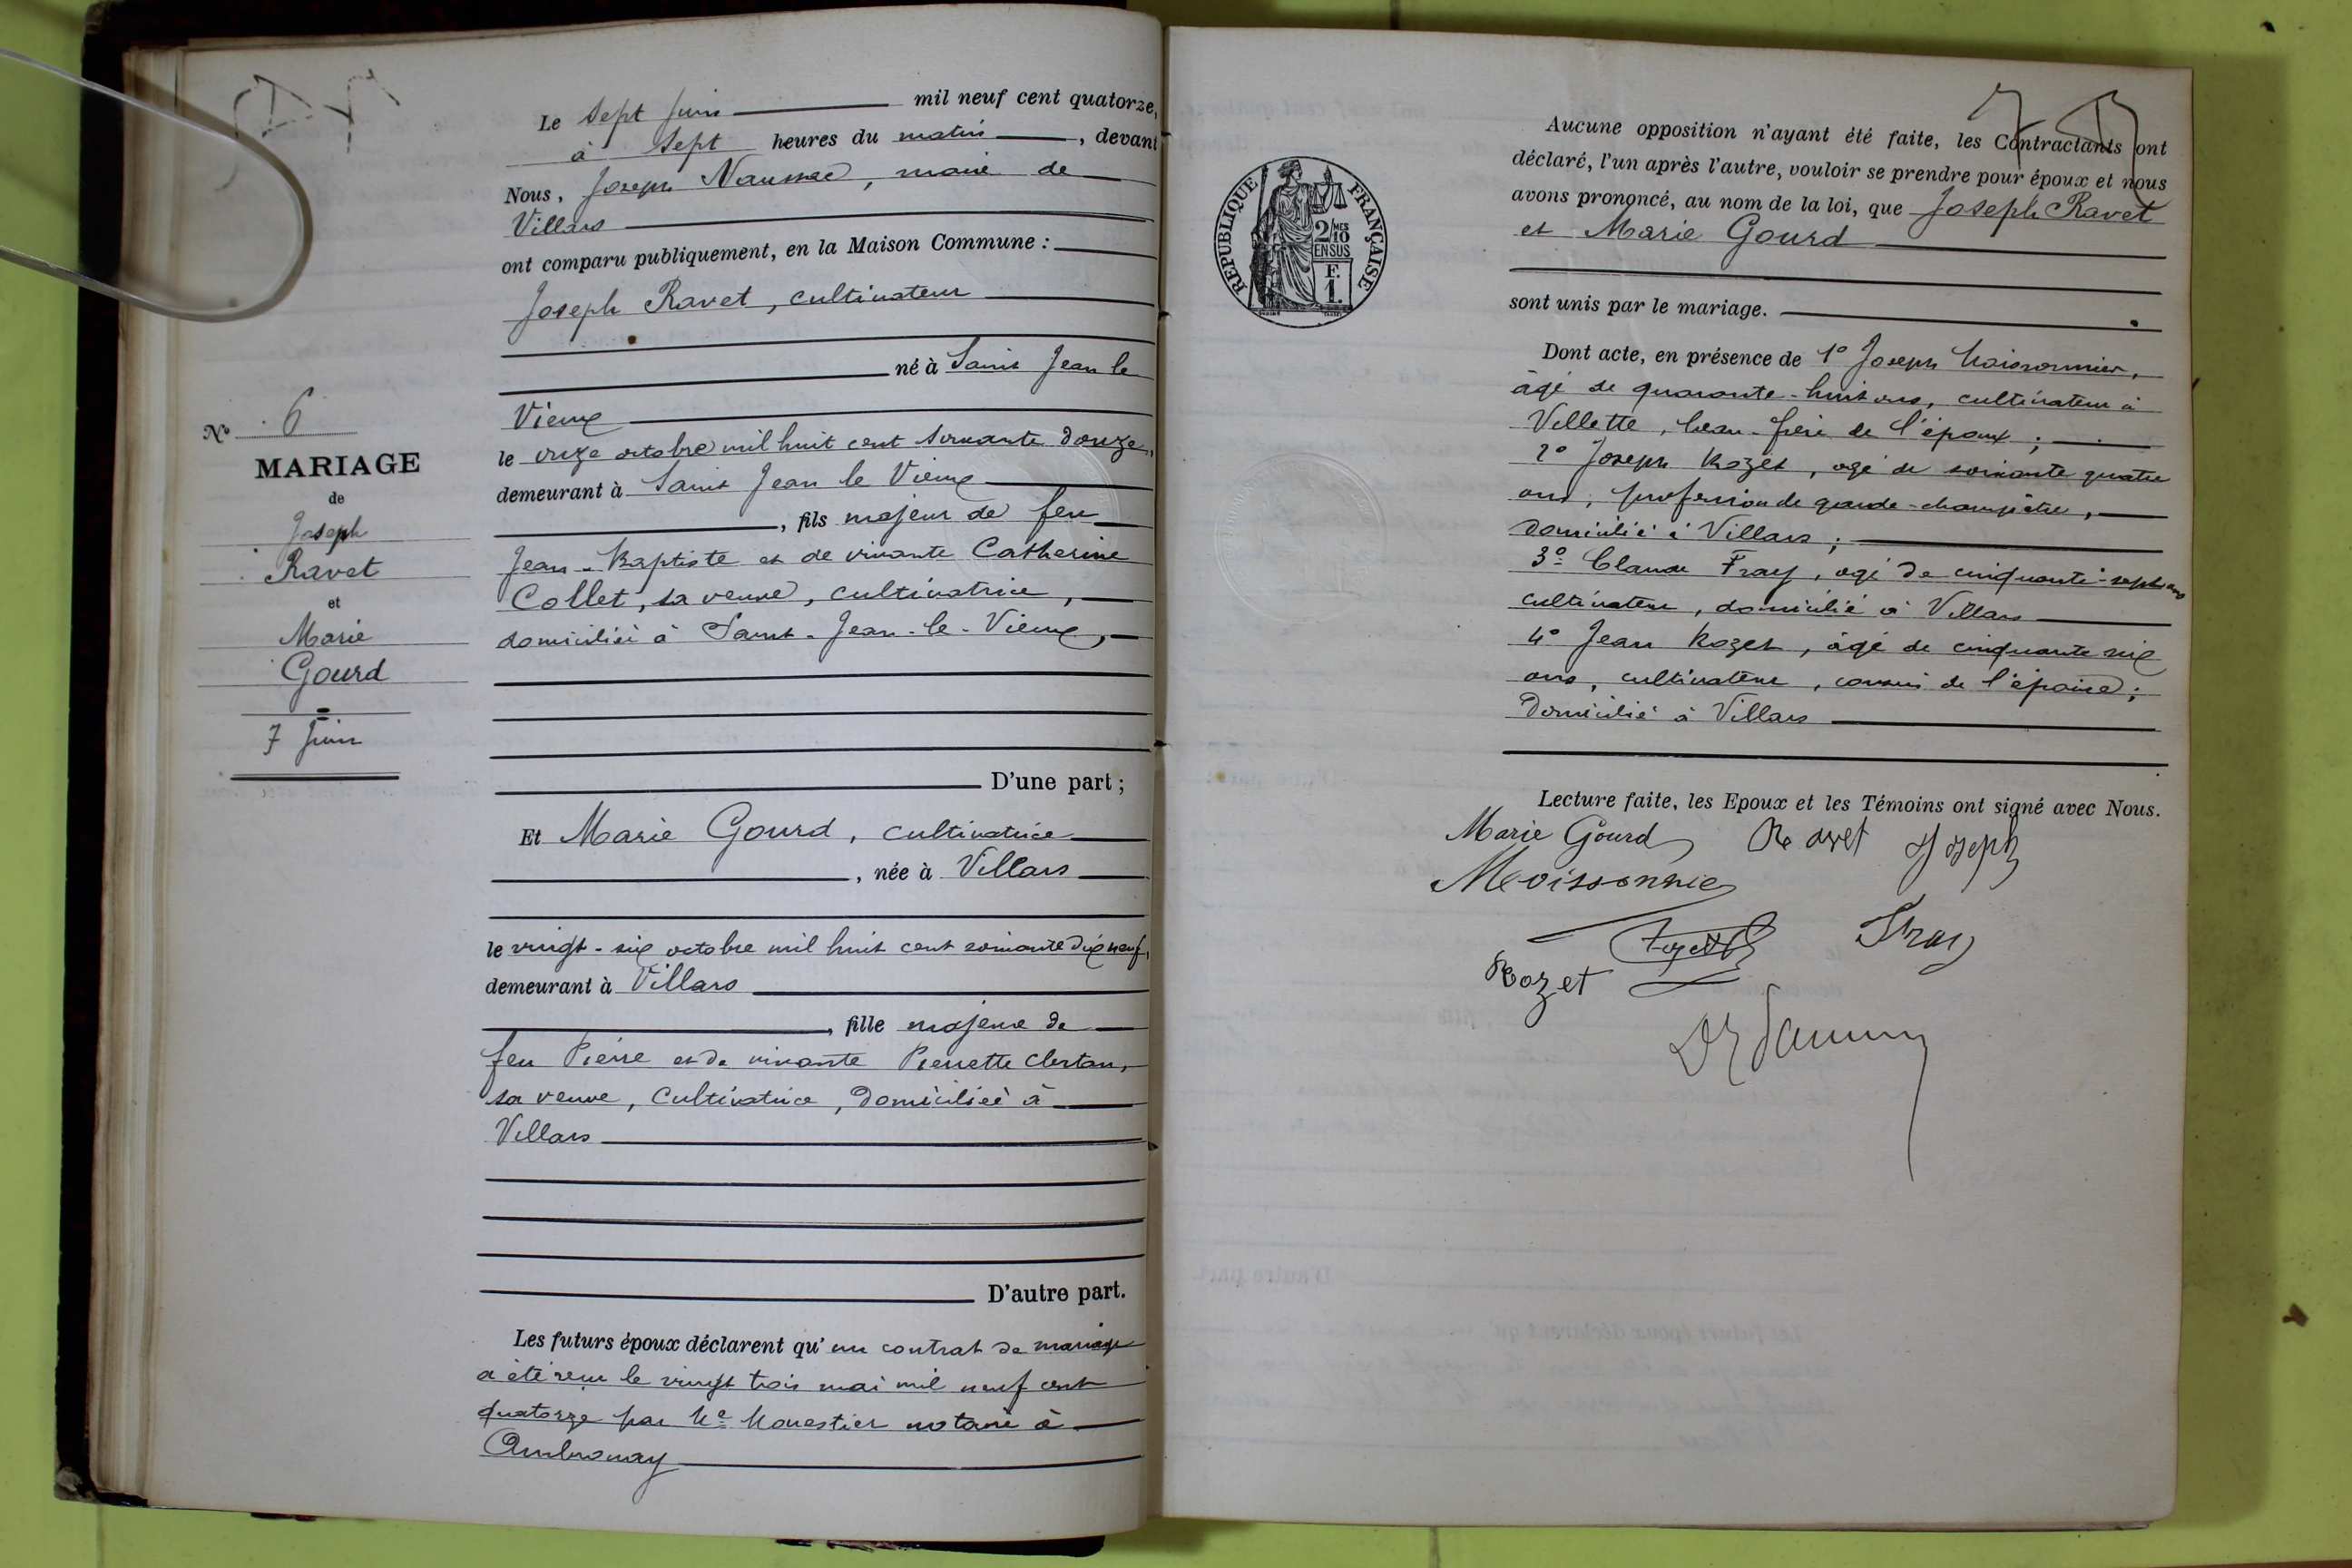 Le sept juin mil neuf cent quatorze,
à sept heures du matin, devant
Nous, Joseph, maire de
Villars
ont comparu publiquement, en la Maison Commune :
Joseph Ravet, cultivateur
né à Saint Jean le
Vieux
le onze octobre mil huit cent soixante douze,
demeurant à Saint Jean le Vieux
, fils majeur de feu
Jean-Baptiste et de vivante Catherine
Collet, sa veuve, cultivatrice,
domiciliée à Saint-Jean-le-Vieux,
D'une part ;
N° 6
MARIAGE
de
Joseph
Ravet
et
Marie
Gourd
7 Juin
Et Marie Gourd, cultivatrice
, née à Villars
le vingt-six octobre mil huit cent soixante dix neuf,
demeurant à Villars
, fille majeure de
feu Pierre et de vivante Pierrette
sa veuve, Cultivatrice, domiciliée à
Villars
D'autre part.
Les futurs époux déclarent qu'un contrat de mariage
a été reçu le vingt trois mai mil neuf cent
quatorze par Me Monestier notaire à
Ambronay
REPUBLIQUE FRANÇAISE
2/10 MES
EN SUS
F.
1.
Aucune opposition n'ayant été faite, les Contractants ont
déclaré, l'un après l'autre, vouloir se prendre pour époux et nous
avons prononcé, au nom de la loi, que Joseph Ravet
et Marie Gourd
sont unis par le mariage.
Dont acte, en présence de 1° Joseph Moissonnier,
âgé de quarante-huit ans, cultivateur à
Villette, beau-frère de l'époux ;
2° Joseph Rozet, agé de soixante quatre
ans, profession de garde-champêtre,
domicilié à Villars ;
3° Claude Fray, agé de cinquante-sept ans
cultivateur, domicilié à Villars
4° Jean Rozet, âgé de cinquante six
ans, cultivateur, cousin de l'épouse ;
Domicilié à Villars
Lecture faite, les Epoux et les Témoins ont signé avec Nous.
Marie Gourd Ravet Joseph
Moissonnie
Fray
Rozet